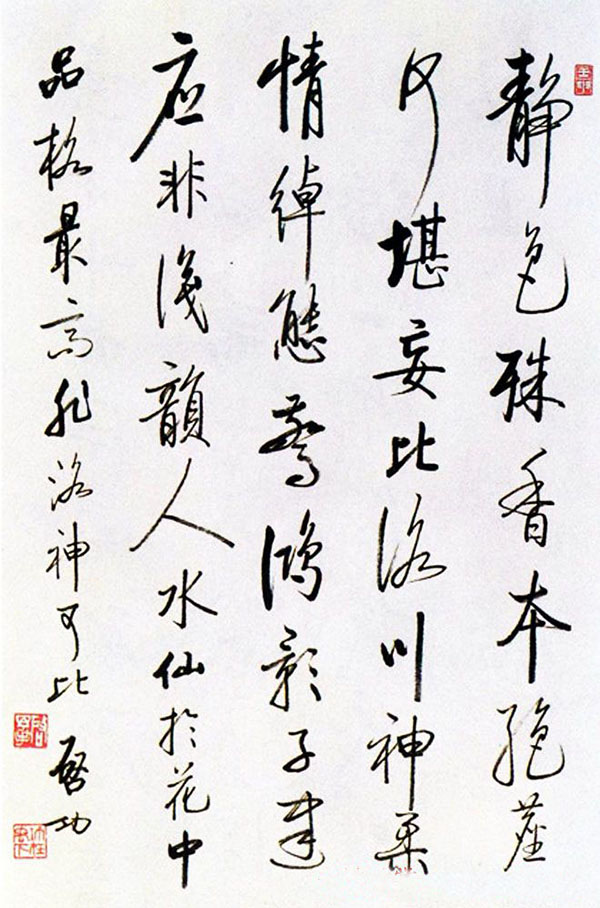 静色殊香本絶塵
何堪妄比洛川神柔
情绰態驚鴻影子建
应非淺韻人水仙於花中
品格最高非洛神可比 啓功